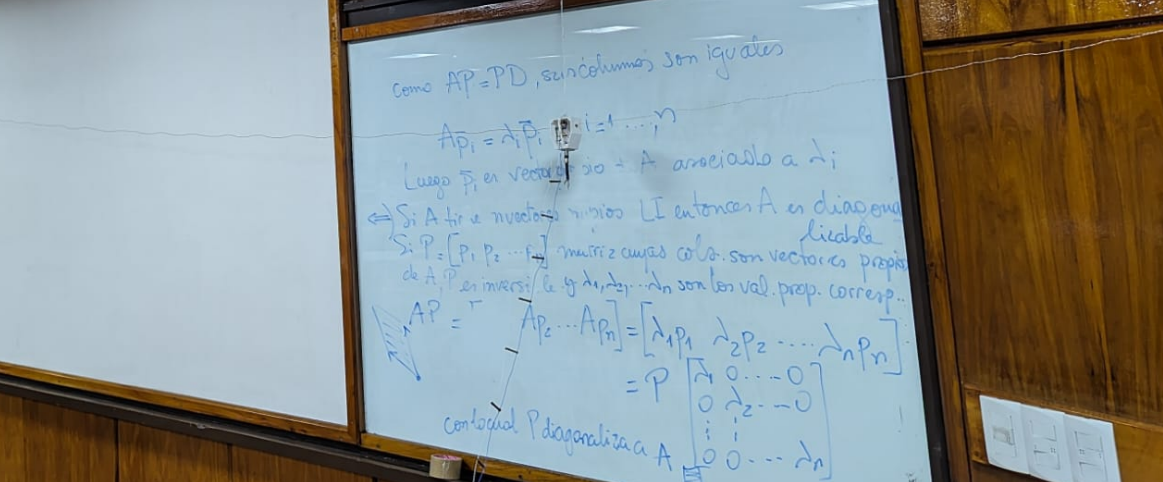 Como AP=PD, sus columnas son iguales
Ap̄ᵢ = λᵢp̄ᵢ i=1 ...,n
Luego p̄ᵢ es A asociado a λᵢ
(⇐) Si A LI entonces A es diagona
lizable
Si P = [p₁ p₂ ... ] matriz cuyas cols. son vectores propios
de A, P es y λ₁, λ₂, ... λn son los val. prop. corresp.
AP = Ap₂ ... Apn] = [λ₁p₁ λ₂p₂ ..... λnpn]
= P [λ₁ 0....0
0 λ₂ ...0
⋮ ⋮
0 0 ... λn]
con lo cual P diagonaliza a A